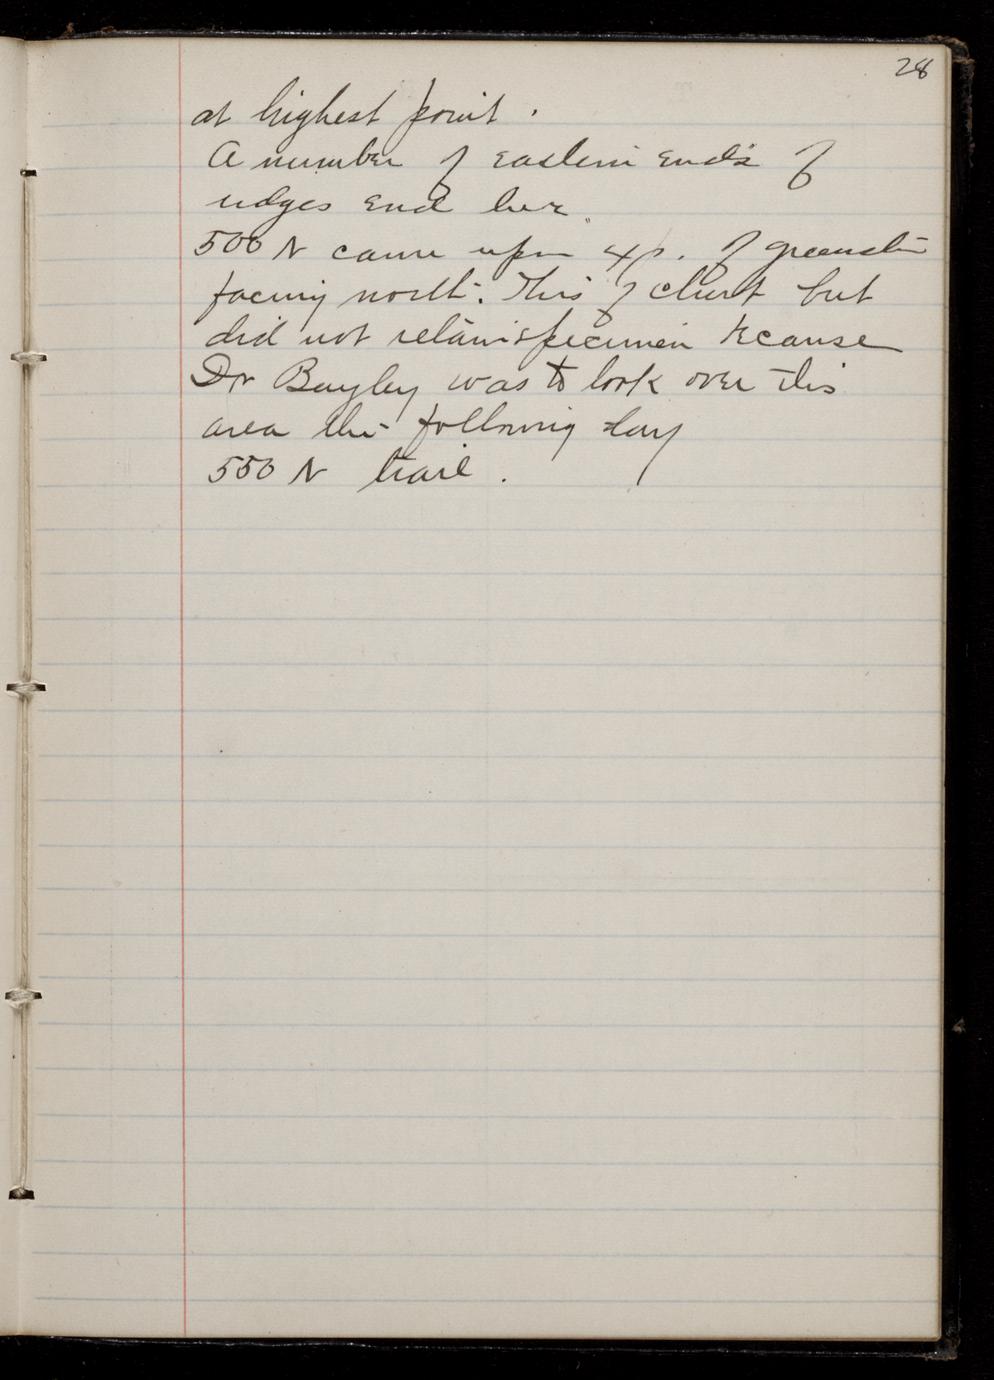 28
at highest point.
A number of eastern ends of
ridges end here.
500 N came upon xp. of greenstn
facing north. This of chert but
did not retain specimen because
Dr Bayley was to look over this
area the following day
550 N trail.